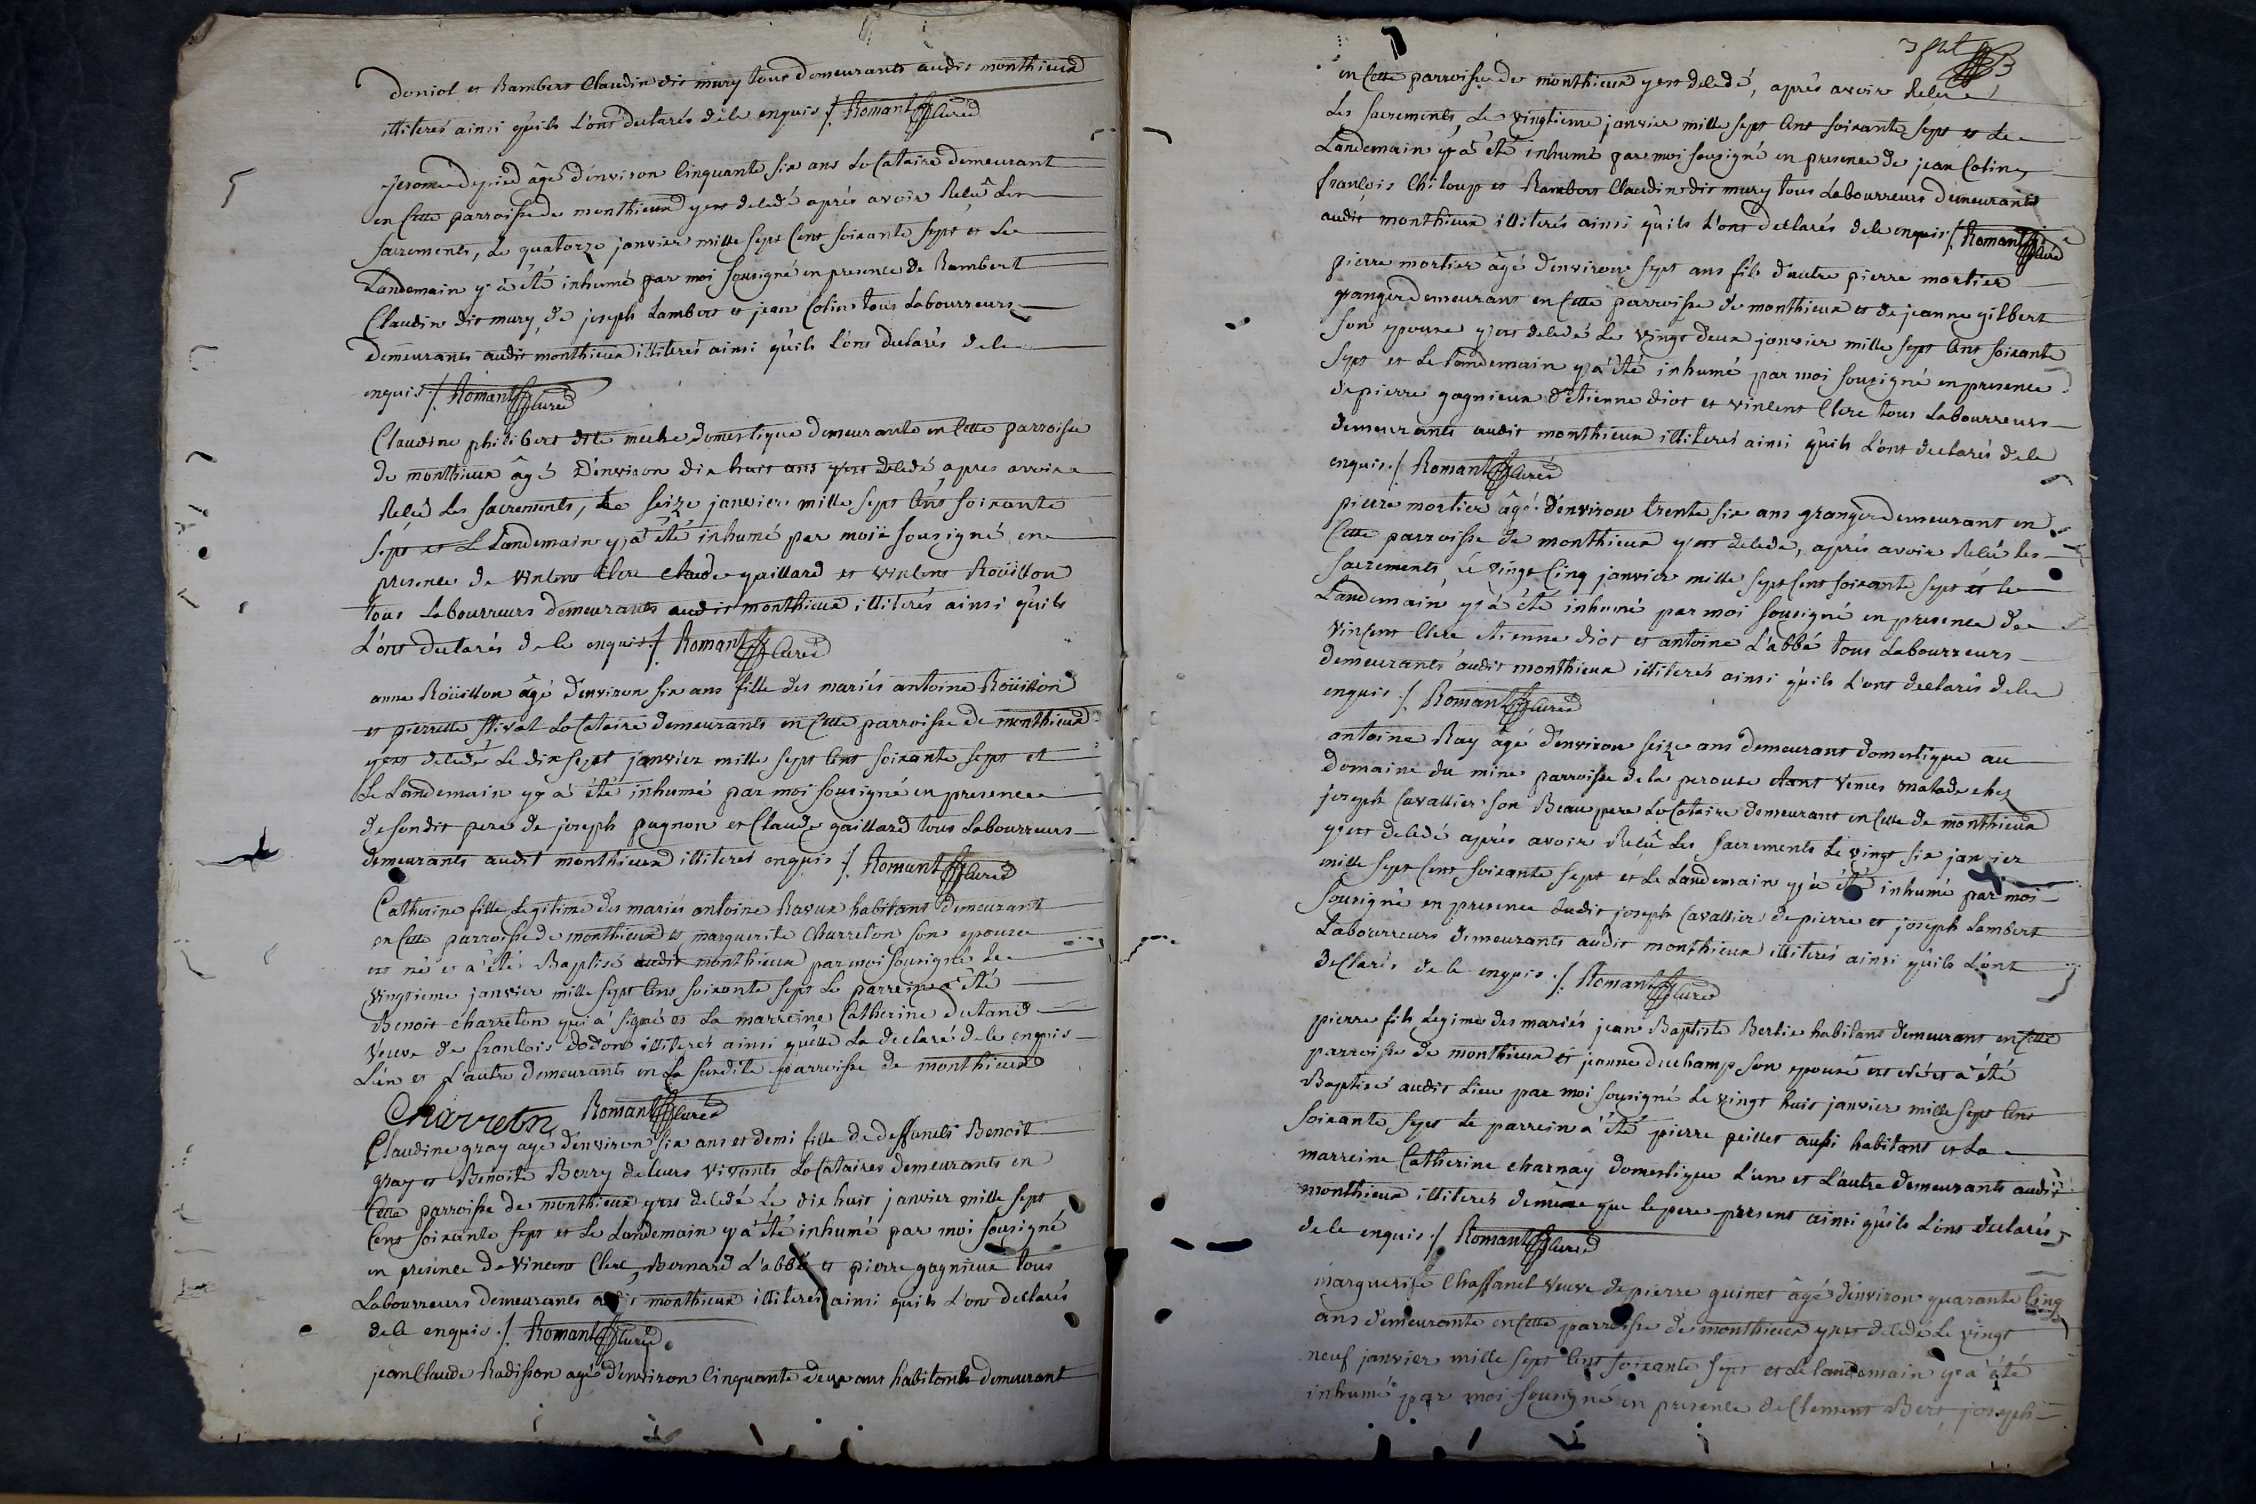 doniol et Rambert Claudin dit mury tous demeurants audit monthieux
illiterés ainsi qu'ils L'ont declarés de le enquis ./. Romant Curé
Jerome depied âgé d'environ Cinquante six ans Locataire demeurant
en Cette parroisse de monthieux y est decedé aprés avoir Reçû Les
sacrements, Le quatorze janvier mille sept Cent soixante sept et Le
Landemain y a été inhumé par moi sousigné en presence de Rambert
Claudin dit mury, de joseph Lambert et jean Colin tous Labourreurs
demeurants audit monthieux illiterés ainsi qu'ils L'ont declarés de le
enquis ./. Romant Curé
Claudine philibert dite domestique demeurante en Cette parroisse
de monthieux âgé D'environ dix huit ans y est decedé, apres avoir
Reçû Les sacrements, Le seize janvier mille sept Cens soixante
sept et L Landemain y a été inhumé par moi sousigné en
presence de vincens Clerc Claude gaillard et vincens Roüillon
tous Labourreurs demeurants audit monthieux illiterés ainsi qu'ils
L'ont declarés de le enquis ./. Romant Curé
anne Roüillon âgé d'environ six ans fille des mariés antoine Roüillon
et pierrette Locataire demeurants en Cette parroisse de monthieux
y est decedé Le dix sept janvier mille sept Cent soixante sept et
Le Landemain y a été inhumé par moi sousigné en presence
de sondit pere de joseph pagnon et Claude gaillard tous Labourreurs
demeurants audit monthieux illiterés enquis ./. Romant Curé
Catherine fille Legitime des mariés antoine Ravux habitant demeurant
en Cette parroisse de monthieux et marguerite Charreton son epouse
est né et a été Baptisé audit monthieux par moi sousigné Le
vingtieme janvier mille sept Cens soixante sept Le parrein a été
Benoit Charreton qui a signé et La marreine Catherine dutand
Veuve de francois dodon illiteres ainsi qu'elle La declaré de le enquis
L'un et L'autre demeurants en La susdite parroisse de monthieux
Charreton Romant Curé
Claudine gray agé d'environ six ans et demi fille de deffuncts Benoit
gray et Benoite Berry de leurs vivants Locataires demeurants en
Cette parroisse de monthieux y est decedé Le dix huit janvier mille sept
Cent soixante sept et Le Landemain y a été inhumé par moi sousigné
en presence de Vincens Clerc, Bernard L'abbé et pierre gagnieux tous
Labourreurs demeurants audit monthieux illiterés ainsi qu'ils L'ont declarés
de le enquis ./. Romant Curé
jean Claude Radisson agé d'environ Cinquante deux ans habitant demeurant
en Cette parroisse de monthieux y est decedé, aprés avoir Reçu
Les sacrements, Le vingtieme janvier mille sept Cens soixante sept et Le
Landemain y a été inhumé par moi sousigné en presence de jean Colin
francois Chiloup et Rambert Claudin dit mury tous Labourreurs demeurants
audit monthieux illiterés ainsi qu'ils L'ont declarés de le enquis ./. Romant Curé
pierre mortier âgé d'environ sept ans fils d'autre pierre mortier
granger demeurant en Cette parroisse de monthieux et de jeanne gilbert
son epouse y est decedé Le vingt deux janvier mille sept Cens soixante
sept et Le landemain y a été inhumé par moi sousigné en presence
de pierre gagnieux d'etienne diot et vincens Clerc tous Labourreurs
demeurants audit monthieux illiterés ainsi qu'ils L'ont declarés de le
enquis ./. Romant Curé
pierre mortier âgé d'environ trente six ans granger demeurant en
Cette parroisse de monthieux y est decedé, aprés avoir Reçû les
sacrements, Le vingt Cinq janvier mille sept Cent soixante sept et le
Landemain y a été inhumé par moi sousigné en presence de
vincens Clerc etienne diot et antoine L'abbé tous Labourreurs
demeurants audit monthieux illiterés ainsi qu'ils L'ont declarés de le
enquis ./. Romant Curé
antoine Ray âgé d'environ seize ans demeurant domestique au
domaine du mine parroisse de la perouse etant venus malade chez
joseph Cavallier son Beau pere Locataire demeurant en Cette de monthieux
y est decedé aprés avoir Reçû Les sacrements Le vingt six janvier
mille sept Cent soixante sept et Le Landemain y a été inhumé par moi
sousigné en presence dudit joseph Cavallier de pierre et joseph Lambert
Labourreurs demeurants audit monthieux illiterés ainsi qu'ils L'ont
declarés de le enquis ./. Romant Curé
pierre fils Legime des mariés jean Baptiste Bertie habitans demeurant en Cette
parroisse de monthieux et jeanne duchamp son epouse est né et a été
Baptisé audit Lieu par moi sousigné Le vingt huit janvier mille sept Cens
soixante sept Le parrein a été pierre peillet aussi habitant et La
marreine Catherine charnay domestique L'un et L'autre demeurants audit
monthieux illiterés de même que le pere present ainsi qu'ils L'ont declarés
de le enquis ./. Romant Curé
marguerite Chaffanel veuve de pierre guinet âgé d'environ quarante Cinq
ans demeurante en Cette parroisse de monthieux y est decedé Le vingt
neuf janvier mille sept Cent soixante sept et Le landemain y a été
inhumé par moi sousigné en presence de Clement Bert, joseph